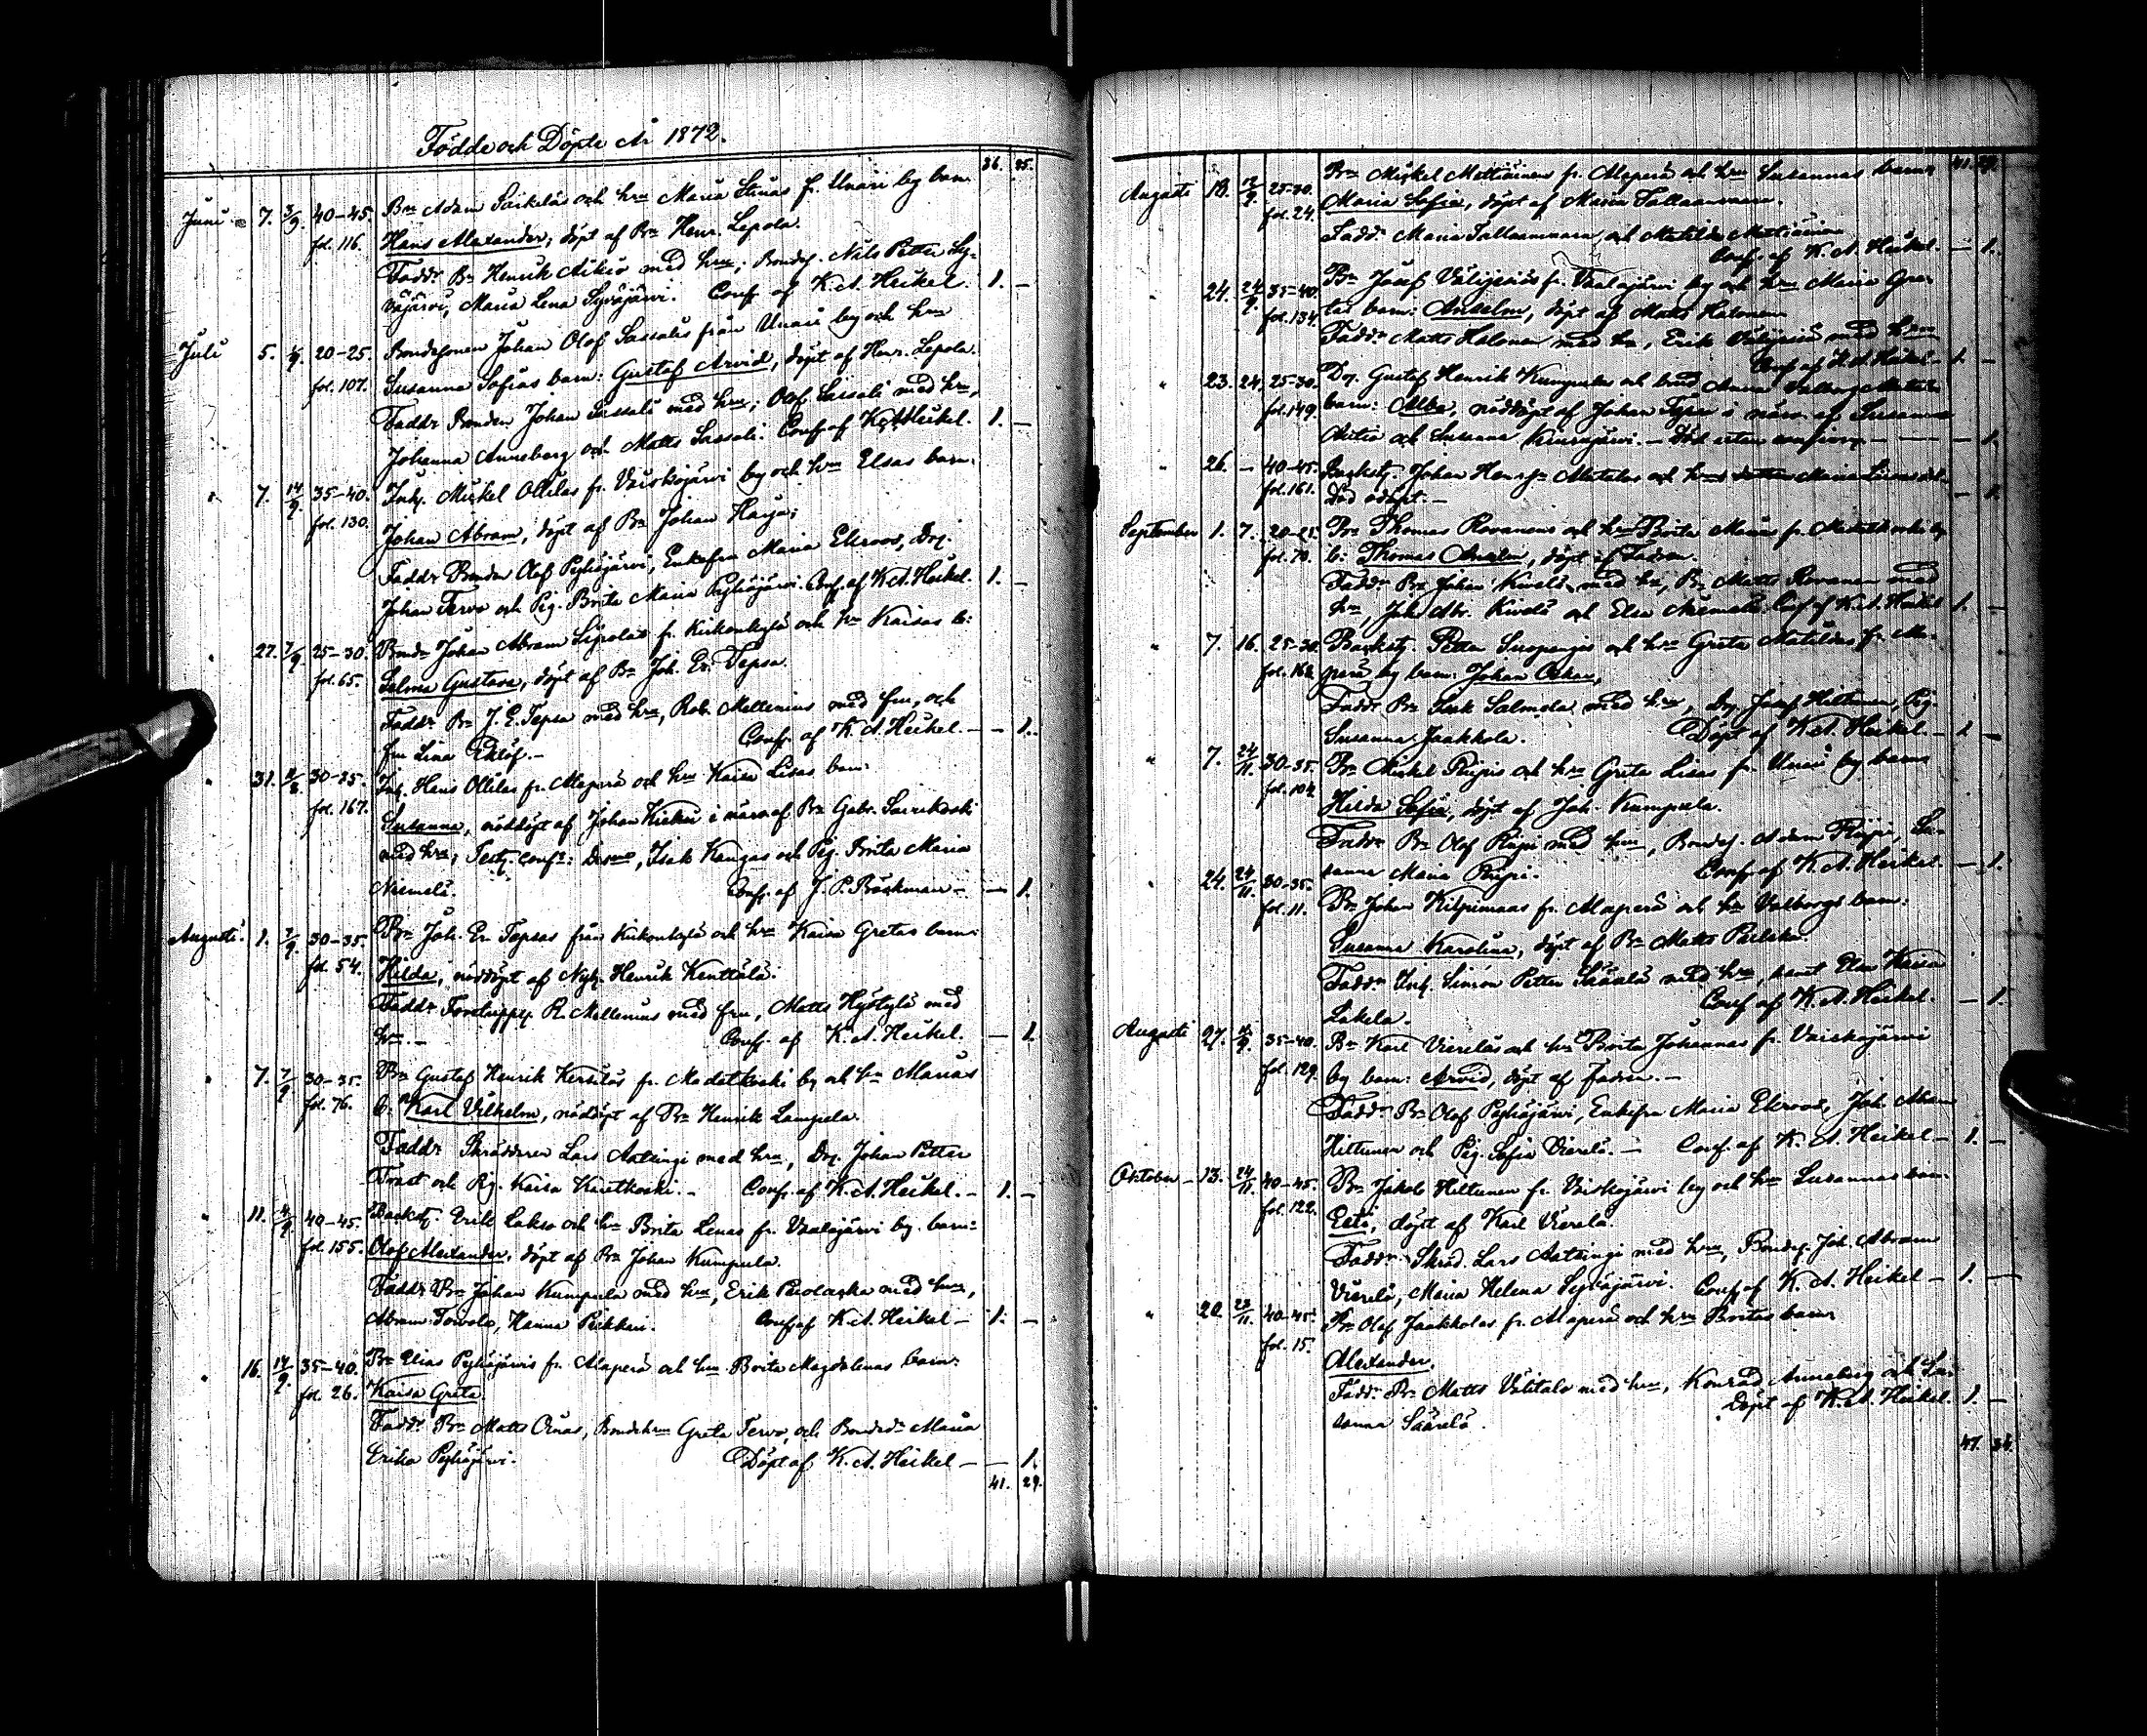 Födde och Döpte År 1872.
36. 25.
Juni 7. 3/9. 40-45. Bn Adam Saikelas och hru Maria Stinas fr. Unari by barn
fol. 116. Hans Alexander, döpt af Bn Henr. Lepola.
Faddr Bn Henrik Aikio med hru; Bondes. Nils Petter Sy-
väjärvi, Maria Lena Syväjärvi. Conf. af K. A. Heikel. 1. —
Juli 5. 20-25. Bondesonen Johan Olof Sassalis från Unari by och hru
fol. 107. Susanna Sofias barn: Gustaf Arvid, döpt af Henr. Lepola.
Faddr Bonden Johan Sassali med hru; Olof Sassali med hru,
Johanna Anneberg och Matts Sassali. Conf. af K. A. Heikel. 1. —
" 7. 14/9. 35-40. Inh. Mickel Ollilas fr. Vaiskojärvi by och hru Elsas barn:
fol. 130. Johan Abram, döpt af Bn Johan Harju;
Faddr Bonden Olof Pyhäjärvi, Enkefru Maria Ekroos, Drg.
Johan Tervo och Pig. Brita Maria Pyhäjärvi. Conf. af K. A. Heikel. 1. —
" 27. 7/9. 25-30. Bonden Johan Abram Sipolas fr. Kirkonkylä och hru Kaisas b:
fol. 65. Selma Gustava, döpt af Bn Joh. Er. Tepsa.
Faddr Bn J. E. Tepsa med hru, Rob. Mellenius med fru, och
fru Lina Eklöf.— Conf. af K. A. Heikel. — — 1.
" 31. 30-35. Inh. Hans Ollilas fr. Alaperä och hru Kaisa Lisas barn:
fol. 167. Susanna, nöddöpt af Johan i närv. af Bn Gabr. Sairikoski
med hru; Isak Kangas och Pig. Brita Maria
Niemelä. Conf. af J. P. Bäckman — — 1.
Augusti. 1. 7/9. 30-35. Bn Joh. Er. Tepsas från Kirkonkylä och hru Kaisa Gretas barn:
fol. 54. Hilda, nöddöpt af Nyb. Henrik Kenttälä.
Faddr R. Mellenius med fru, Matts Hyötylä med
hru.— Conf. af K. A. Heikel. — 1.
" 7. 7/9 30-35. Bn Gustaf Henrik Kersiläs fr. Madetkoski by och hru Marias
fol. 76. b. Karl Vilhelm, nöddöpt af Bn Henrik Lampela.
Faddr Skräddaren Lars Aatsingi med hru, Drg. Johan Petter
Frast och Pig. Kaisa Kuretkoski.— Conf. af K. A. Heikel. — 1. —
" 11. 40-45. Backst. Erik Lakso och hru Brita Lenas fr. Vaalajärvi by. barn:
fol. 155. Olof Alexander, döpt af Bn Johan Kumpula.
Faddr Bn Johan Kumpula med hru, Erik med hru,
Abram Toivola, Hanna Pirkkari. Conf. af K. A. Heikel — 1. —
" 16. 14/9. 35-40. Bn Elias Pyhäjärvis fr. Alaperä och hru Brita Magdalenas barn:
fol. 26. Kaisa Greta.
Faddr Bn Matts Ornas, Bondehru Greta Tervo, och Bonded. Maria
Erika Pyhäjärvi. Döpt af K. A. Heikel — — 1.
41. 29.
41. 29.
Augusti 18. 25-30. Bn Mickel Mattiainens fr. Alaperä och hru Susannas barn
fol. 24. Maria Sofia, döpt af Maria Tallaanvaara.
Faddr Maria Tallaanvaara och Matilda Mattiainen
Conf. af K. A. Heikel. — 1.
" 24. 24/9. 35-40. Bn Josef Välijeesiös fr. Vaalajärvi by och hru Maria Gre-
fol. 134. tas barn: Anselm, döpt af Matts Halonen
Faddr Matts Halonen med hu, Erik med hru
Conf. af K. A. Heikel — 1. —
" 23. 24. 25-30. Drg. Gustaf Henrik Kumpulas och
fol. 149. barn: Alba, nöddöpt af Johan i närv. af Susanna
och Susanna — Död utan — — — 1.
" 26. — 40-45. Backst. Johan och hrus Maria
fol. 161. död odöpt.— — 1.
September 1. 7. 20-25. Bn Thomas Rovanens och hru Brita Marias fr. Madetkoski by
fol. 70. b: Thomas Anselm, döpt af fadren.
Faddr Bn Johan Kivelä med hu, Bn Matts Rovanen med
hru, Joh. Abr. Kivelä och Elsa Niemelä Conf. af K. A. Heikel 1. —
" 7. 16. 25-30. Backst. Petter Suopangis och hru Greta Matildas fr. Ala-
perä by barn: Johan Oskar,
Faddr Bn Isak Salmela med hru, Drg. Josef Hiltunen, Pig.
Susanna Jaakkola. Döpt af K. A. Heikel. — 1 —
" 7. 24/11. 30-35. Bn Mickel Riipis och hru Greta Lisas fr. Unari by barn
fol. 104. Hilda Sofia, döpt af Joh. Kumpula.
Faddr Bn Olof Riipi med hru, Bondes. Adam Riipi, Su-
sanna Maria Riipi. Conf. af K. A. Heikel. — 1.
" 24. 24/11. 30-35. Bn Johan Kilpimaas fr. Alaperä och hu Valborgs barn:
fol. 11. Susanna Karolina, döpt af Bn Matts
Faddr Inh. Simon Petter med hru, samt Elsa Kaisa
Lakela. Conf. af K. A. Heikel. — 1.
Augusti 27. 35-40. Bn Karl Viereläs och hru Brita Johannas fr. Vaiskojärvi
fol. 129. by barn: Arvid, döpt af fadren.—
Faddr Bn Olof Pyhäjärvi, Enkefru Maria Ekroos, Joh. Abram
Hiltunen och Pig. Sofia Vierelä.— Conf. af K. A. Heikel — 1. —
Oktober — 13. 24/11. 40-45. Bn Jakob Hiltunen fr. Vaiskojärvi by och hru Susannas barn:
fol. 122. döpt af Karl Vierelä.
Faddr Skräd. Lars Aatsingi med hru, Bondes. Joh. Abram
Vierelä, Maria Helena Syväjärvi. Conf. af K. A. Heikel — 1. —
" 20 40-45. Bn Olof Jaakkolas fr. Alaperä och hru Britas barn
fol. 15. Alexander.
Faddr Bn Matts Välitalo med hru, Konrad Anneberg och Su-
sanna Säärelä. Döpt af K. A. Heikel. 1. —
47. 34.